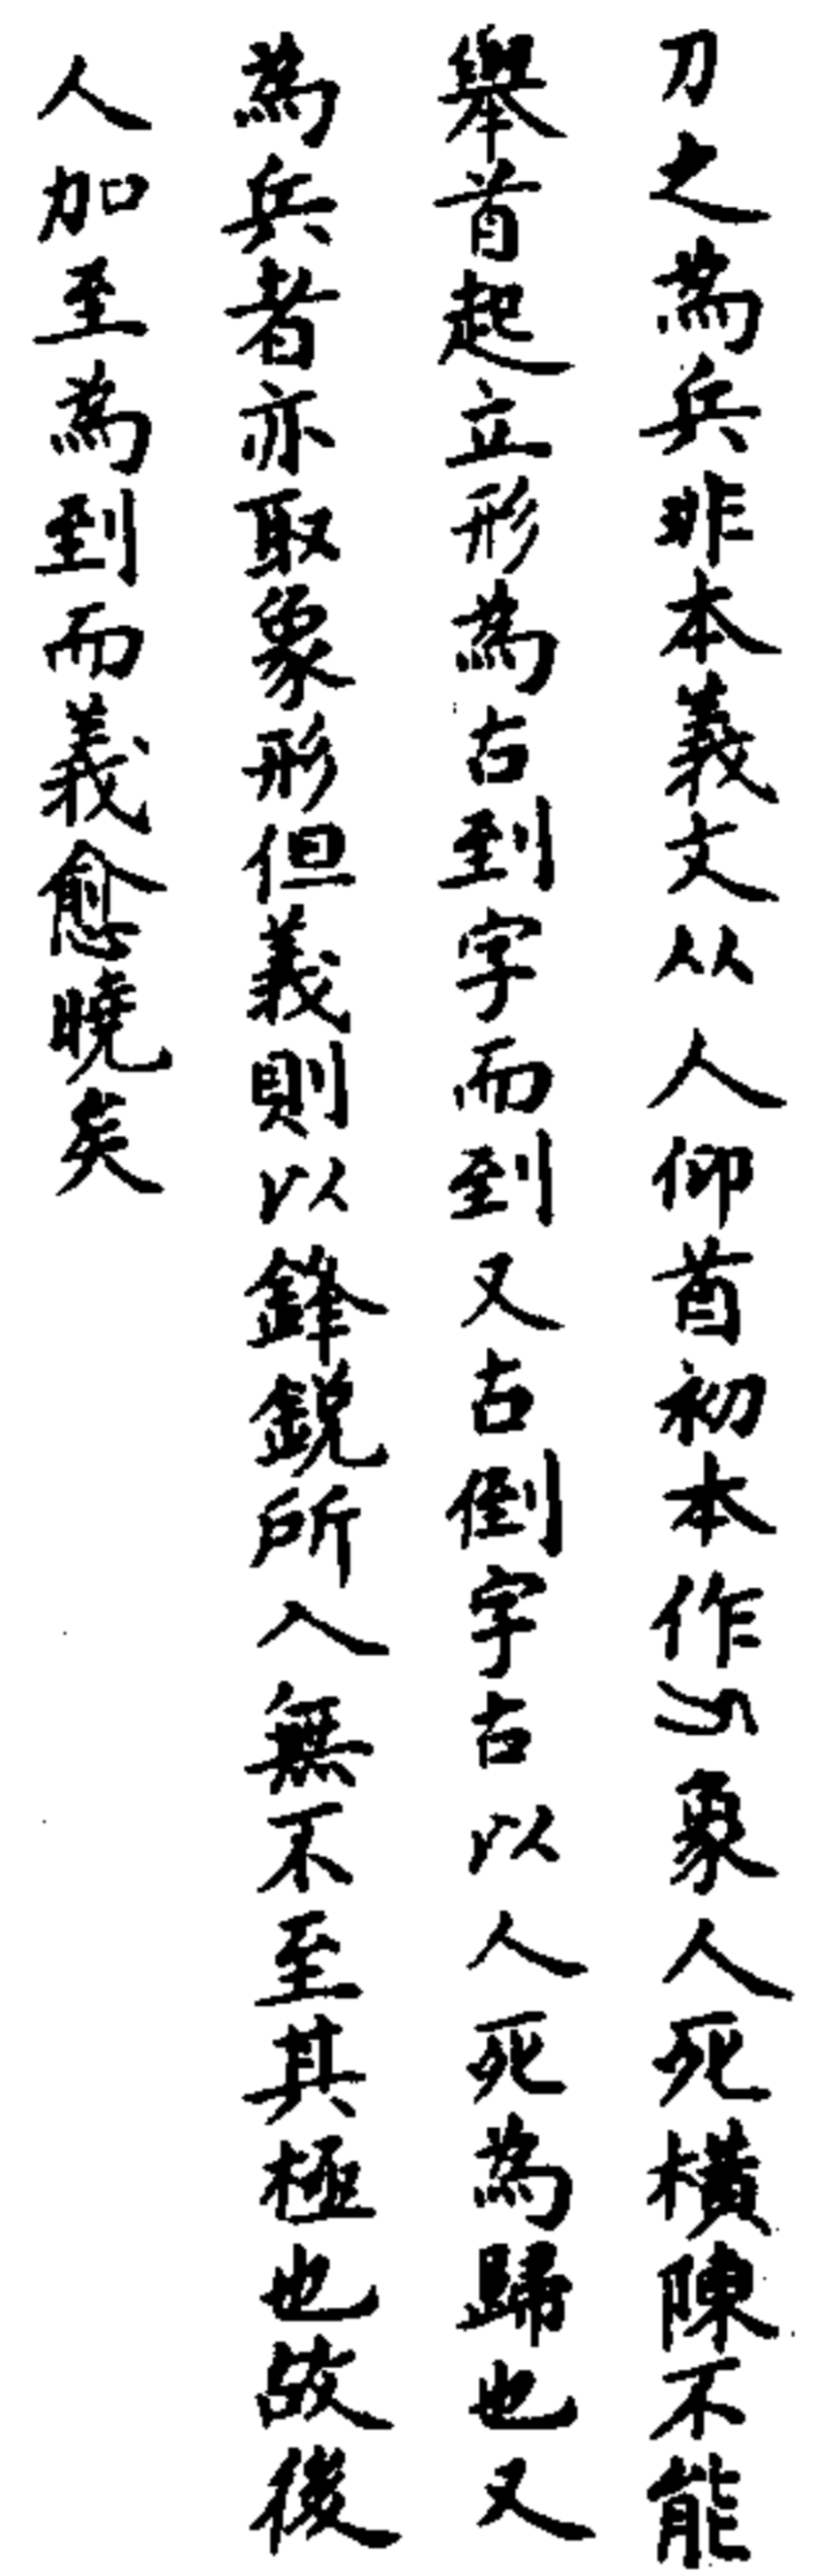 刀之為兵非本義文从人仰首初本作象人死橫陳不能
舉首起立形為古到字而到又古倒字古以人死為歸也又
為兵者亦取象形但義則以鋒銳所入無不至其極也故後
人加至為到而義愈曉矣